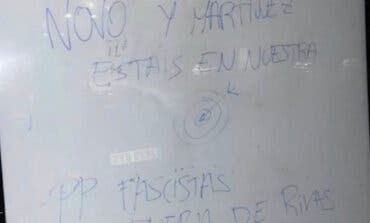 NOVO Y MARTINEZ
ESTAIS EN NUESTRA
PP FASCISTAS
FUERA DE RIVAS